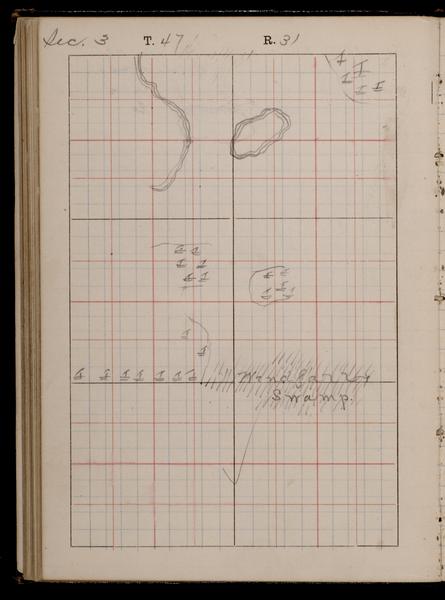 Sec. 3 T. 47 R. 31
Swamp.